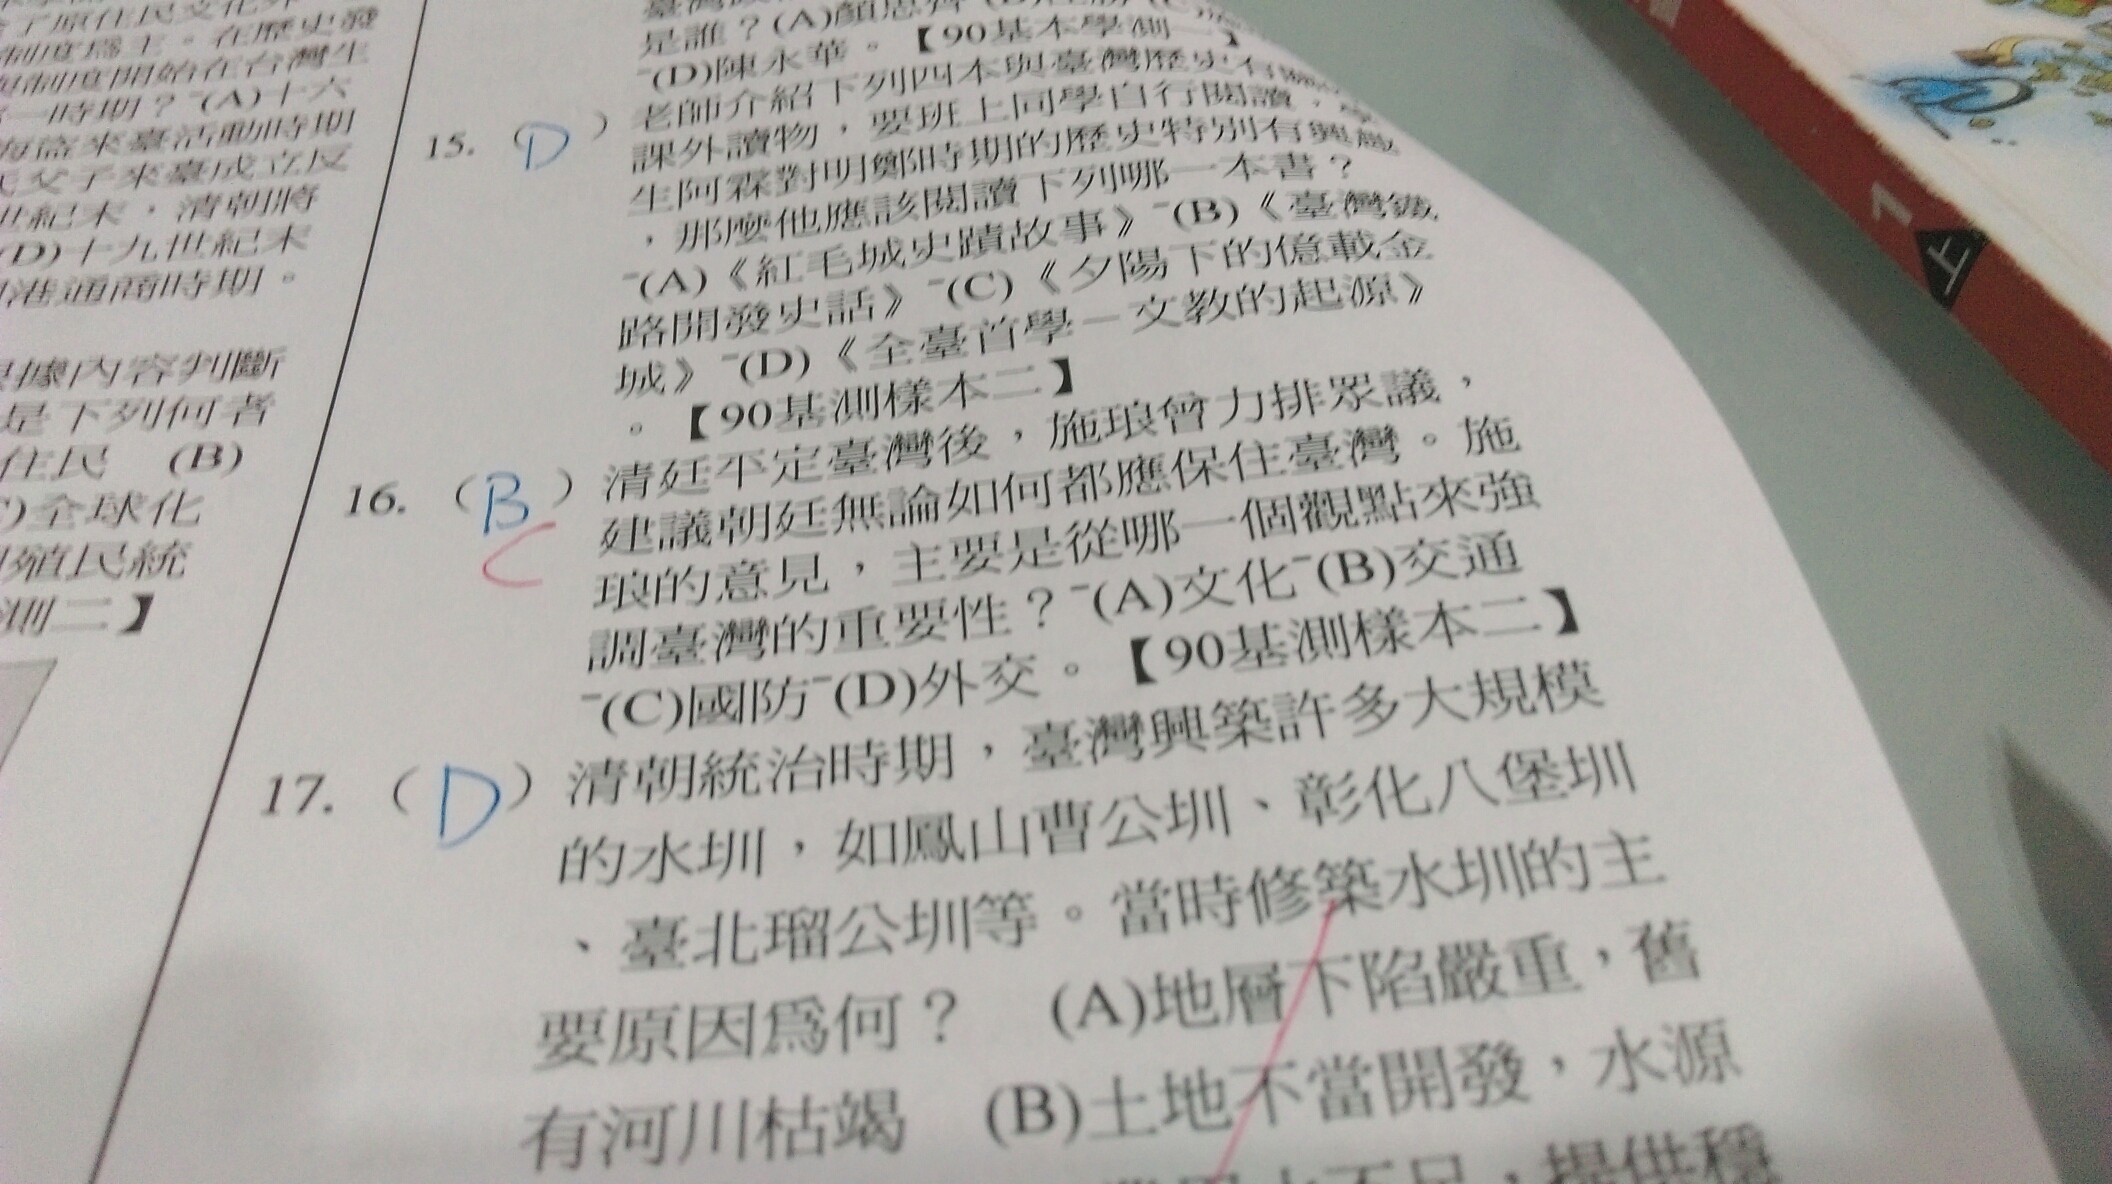 了原住民文化
制度為主。在歷史發
制度開始在台灣生
一時期？(A)十六
海盜來臺活動時期
父子來臺成立反
世紀末，清朝將
(D)十九世紀末
港通商時期。
根據內容判斷
是下列何者
住民 (B)
)全球化
殖民統
測二】
是誰？(A)顏思齊
(D)陳永華。【90基本學測一】
15. (D) 老師介紹下列四本與臺灣歷史有
課外讀物，要班上同學自行閱讀，學
生阿霖對明鄭時期的歷史特別有興趣
，那麼他應該閱讀下列哪一本書？
(A)《紅毛城史蹟故事》 (B)《臺灣鐵
路開發史話》 (C)《夕陽下的億載金
城》 (D)《全臺首學－文教的起源》
。【90基測樣本二】
16. (B) 清廷平定臺灣後，施琅曾力排眾議，
C
建議朝廷無論如何都應保住臺灣。施
琅的意見，主要是從哪一個觀點來強
調臺灣的重要性？(A)文化(B)交通
(C)國防(D)外交。【90基測樣本二】
17. (D) 清朝統治時期，臺灣興築許多大規模
的水圳，如鳳山曹公圳、彰化八堡圳
、臺北瑠公圳等。當時修築水圳的主
要原因為何？ (A)地層下陷嚴重，舊
有河川枯竭 (B)土地不當開發，水源
不足，提供穩
1上